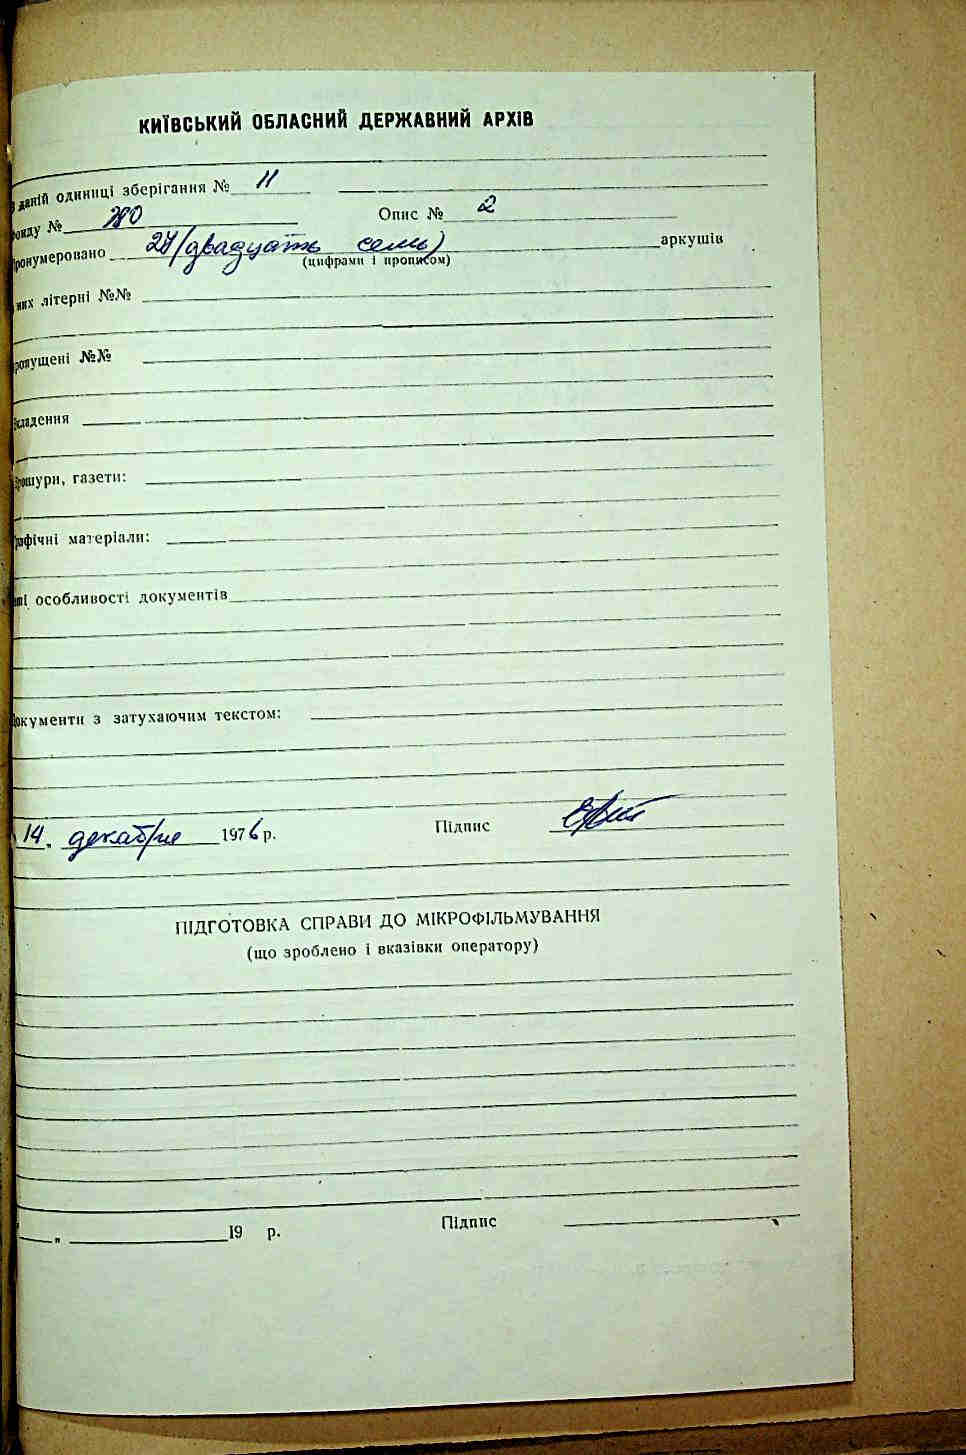 КИЇВСЬКИЙ ОБЛАСНИЙ ДЕРЖАВНИЙ АРХІВ
даній одиниці зберігання № 11
онду № Опис № 2
ронумеровано 27 (двадцать семь) аркушів
(цифрами і прописом)
них літерні №№
ропущені №№
кладення
рошури, газети:
рафічні матеріали:
ші особливості документів
окументи з затухаючим текстом:
14 " декабря 1976 р. Підпис
ПІДГОТОВКА СПРАВИ ДО МІКРОФІЛЬМУВАННЯ
(що зроблено і вказівки оператору)
" 19 р. Підпис